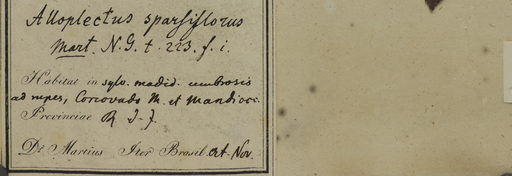 Alloplectus sparsiflorus
Mart. N. G. t. 223. f. 1.
Habitat in sylv. madid. umbrosis
ad rupes, Corcovado M. et Mandiocc.
Provinciae R. d. J.
Dr Martius Iter Brasil. Oct. Nov.